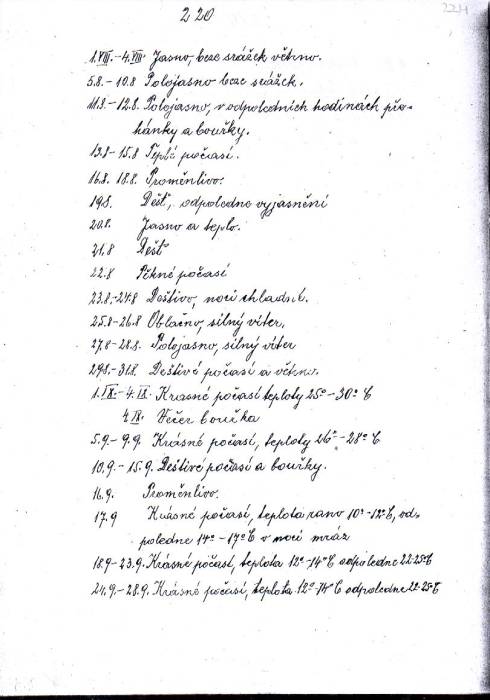 220
2211
1.VIII.-4.VIII. Jasno, beze srážek větrno.
5.8.-10.8 Polojasno beze srážek.
11.8.-12.8. Polojasno, v odpoledních hodinách pře-
hánky a bouřky.
13.8-15.8 Teplé počasí.
16.8. 18.8. Proměnlivo.
19.8. Déšť, odpoledne vyjasnění
20.8. Jasno a teplo.
21.8 Déšť
22.8 Pěkné počasí
23.8.-24.8 Deštivo, noci chladné.
25.8-26.8 Oblačno, silný víter.
27.8-28.8. Polojasno, silný víter
29.8.-31.8. Deštivé počasí a větrno.
1.IX.-4.IX. Krásné počasí teploty 25°-30°C
4.IX. Večer bouřka
5.9.-9.9. Krásné počasí, teploty 26°-28°C
10.9.-15.9. Deštivé počasí a bouřky.
16.9. Proměnlivo.
17.9 Krásné počasí, teplota ráno 10°-12°C, od-
poledne 14°-17°C v noci mráz
18.9-23.9. Krásné počasí, teplota 12°-14°C odpoledne 22-25°C
24.9.-28.9. Krásné počasí, teplota 12°-14°C odpoledne 22-25°C